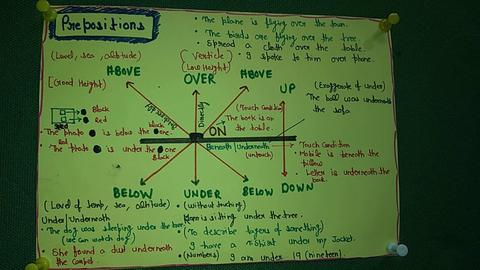 Prepositions
• The plane is flying over the town.
• The birds are flying over the tree.
• Spread a cloth over the table.
• I spoke to him over phone.
(Level, sea, altitude)
[Good Height]
ABOVE
(Verticle)
(Low Height)
OVER
ABOVE
UP
(Exaggerate of under)
The ball was underneath
the sofa.
Directly
Black
Red
• The photo is below the black one.
• The photo is under the one
Red
Black
ON
(Touch Condition)
• The book is on
the table.
Beneath/Underneath
(untouch)
Touch Condition
• Mobile is beneath the
pillow
• Letter is underneath the
book.
BELOW
UNDER
BELOW
DOWN
(Level of temp, sea, altitude)
Under/Underneath
• The dog was sleeping under the tree.
(we can watch dog)
• She found a dust underneath
the carpet.
• (without touching)
is sitting under the tree.
• (To describe layers of something)
I have a T-shirt under my Jacket.
• (Numbers) I am under 19 (nineteen).